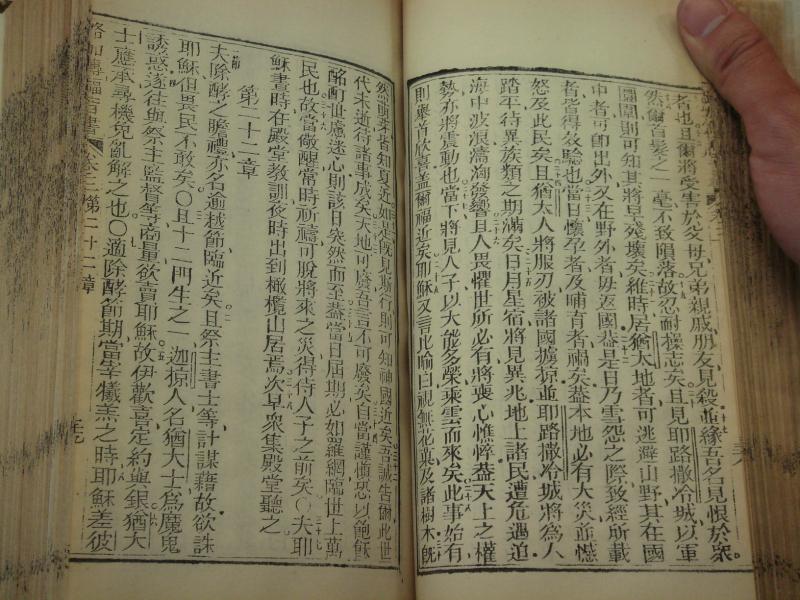 者也且爾將受害於父母兄弟親戚朋友見殺並緣吾名見恨於衆
然爾首髮之一毫不致隕落故忍耐操志矣且見耶路撒冷城以軍
圍困則可知其將早殘壞矣維時居猶太地者可逃避山野其在國
中者可卽出外又在野外者毋返國恭是日乃雪怨之際致經所載
者皆得效驗也當日懷孕者及哺有者禍矣蓋本地必有大災並憾
怒及此民矣且猶太人將服刃被諸國擄掠並耶路撒冷城將為人
踏平待異族類之期滿矣日月星宿將見異兆地上諸民遭危遇迫
海中波浪濤淘發響且人畏懼世所必有將喪心憔悴蓋天上之權
勢亦將震動也當下將見人子以大能多榮乘雲而來矣此事始有
則舉首欣喜蓋爾福近矣耶穌又言此喻曰視無花菓及諸樹木旣
然萌芽者知夏近如是旣見斯行則可知神國近矣吾誠告爾此世
代未逝待諸事成矣天地可廢吾言不可廢矣自當謹慎恐以飽飫
酩酊世慮迷心則該日突然而至蓋當日屆期必如羅網臨世上萬
民也故當儆醒常時祈禱可脫將來之災得侍人子之前矣〇夫耶
穌晝時在殿堂教訓後時出到橄欖山居焉次早衆集殿堂聽之
第二十二章
夫除酵之膽禮亦名逾越節臨近矣且祭主書士等計謀藉故欲誅
耶穌但畏民不敢矣〇且十二門生之一迦掠人名猶大士為魔鬼
誘惑遂往與祭主監督等商量欲賣耶穌故伊歡喜定約與銀猶大
士應承尋機免亂解之也〇適除酵節期當宰犧羔之時耶穌差彼
路加傳福音書 卷三 第二十二章